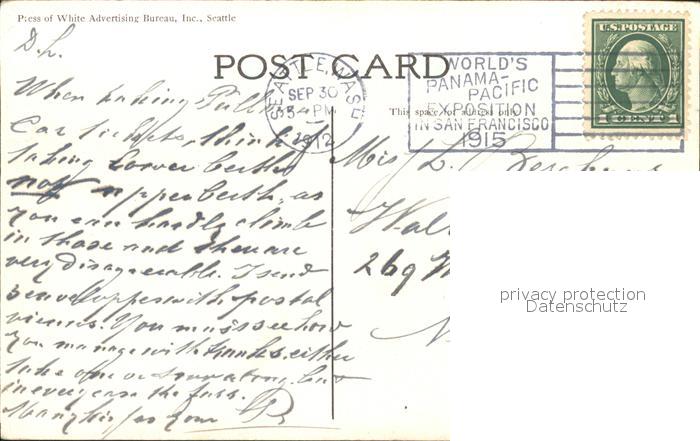 Press of White Advertising Bureau, Inc., Seattle
POST CARD
This space for address only
U.S. POSTAGE
1 CENT 1
SEATTLE, WASH
SEP 30
5 PM
1912
WORLD'S
PANAMA-
PACIFIC
EXPOSITION
IN SAN FRANCISCO
1915
D. h.
When taking Pull
Car tickets, think
taking lower berths
not upper berth, as
you can hardly climb
in those and they are
very disagreeable. I send
envelopes with postal
views. You must see how
you manage with trunks, either
take one or several along, but
in every case the
from your
Mis
Wal
269 W
N
privacy protection
Datenschutz